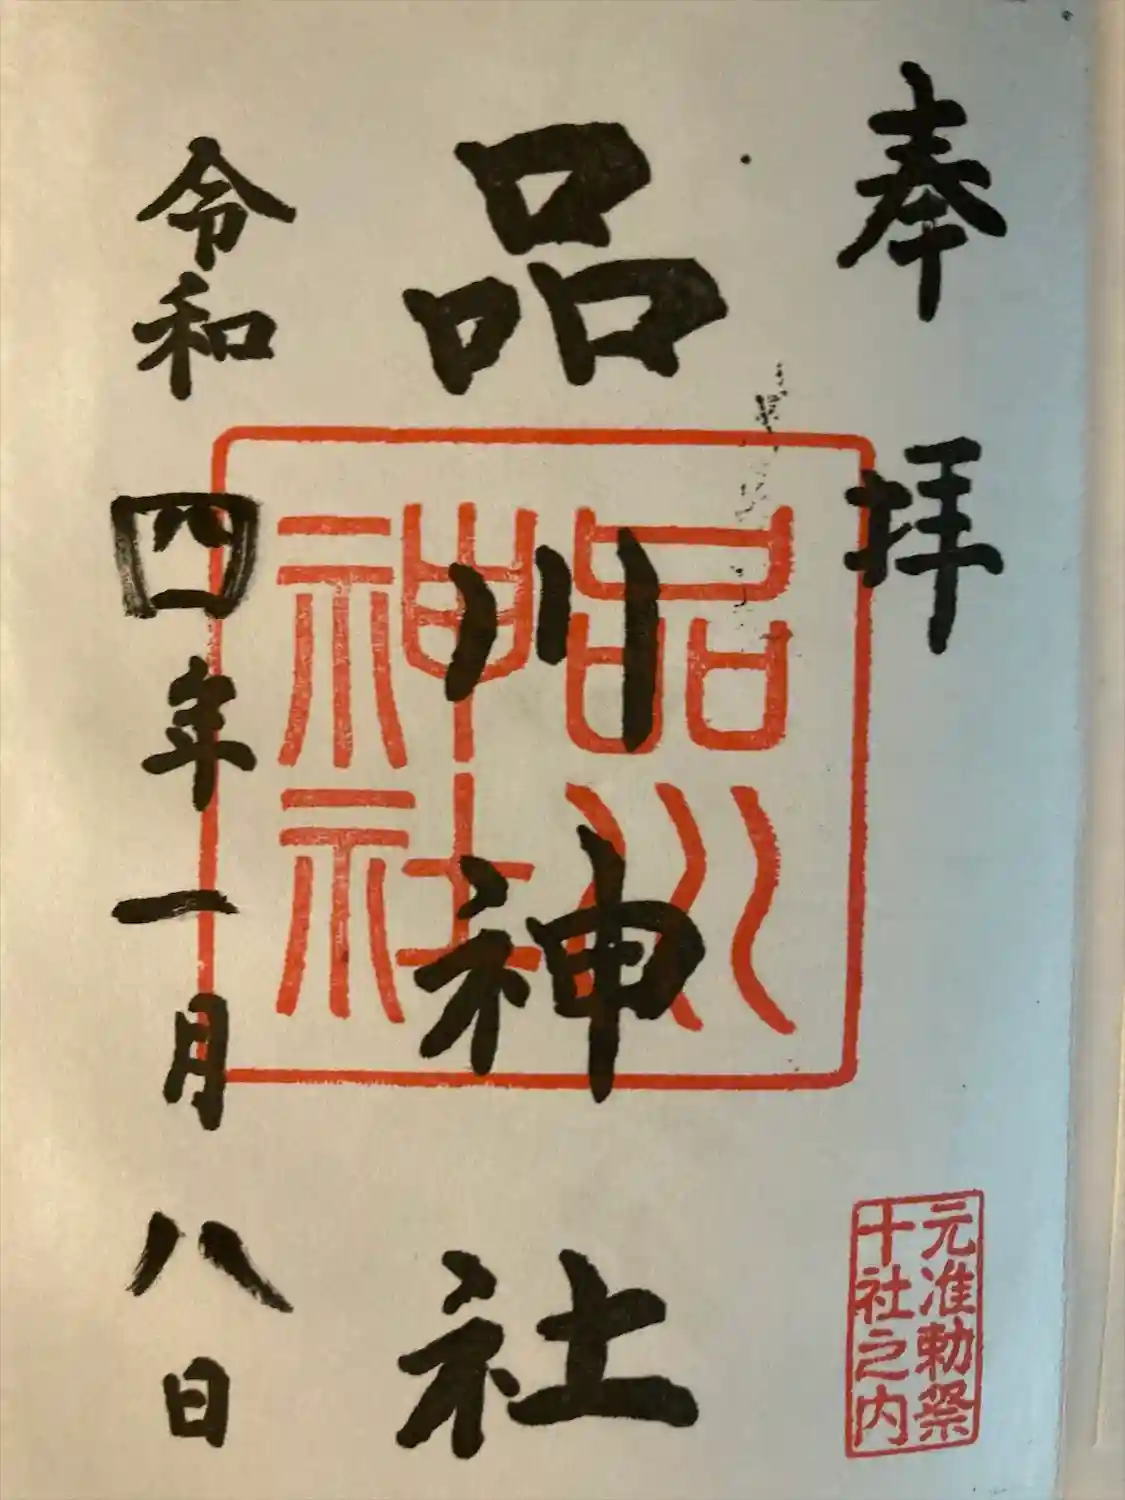 奉拝
元准勅祭
十社之内
品川神社
品川
神社
令和四年一月八日